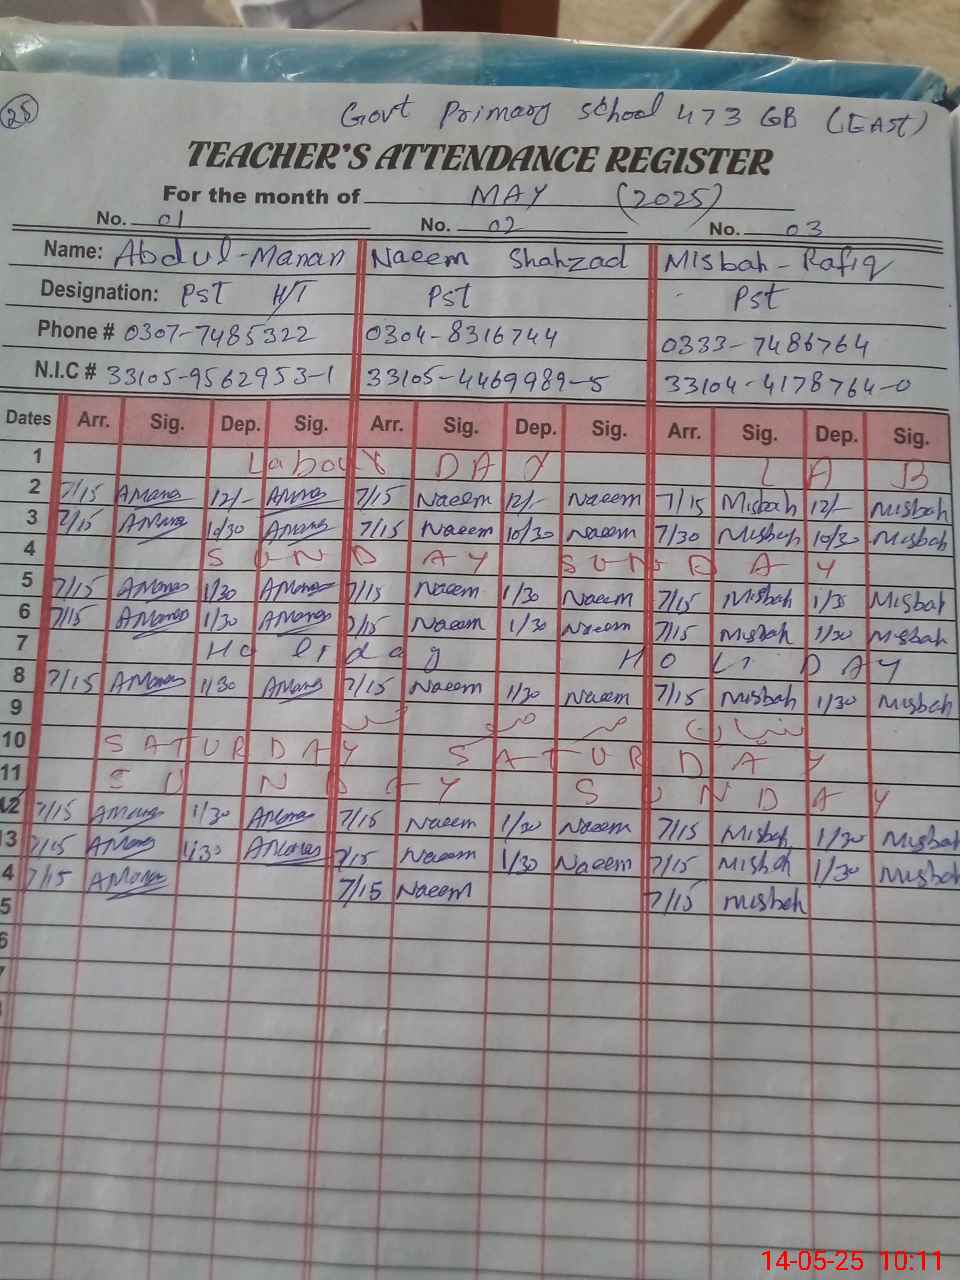 25
Govt Primary School 473 GB (EAST)
TEACHER'S ATTENDANCE REGISTER
For the month of MAY (2025)
No. 01 No. 02 No. 03
Name: Abdul-Manan Naeem Shahzad Misbah-Rafiq
Designation: PST H/T PST PST
Phone # 0307-7485322 0304-8316744 0333-7486764
N.I.C # 33105-9562953-1 33105-4469989-5 33104-4178764-0
Dates Arr. Sig. Dep. Sig. Arr. Sig. Dep. Sig. Arr. Sig. Dep. Sig.
1 Labour DAY LAB
2 7/15 AManan 12/- AManan 7/15 Naeem 12/- Naeem 7/15 Misbah 12/- Misbah
3 7/15 AManan 10/30 AManan 7/15 Naeem 10/30 Naeem 7/30 Misbah 10/30 Misbah
4 SUNDAY SUNDAY
5 7/15 AManan 1/30 AManan 7/15 Naeem 1/30 Naeem 7/15 Misbah 1/30 Misbah
6 7/15 AManan 1/30 AManan 7/15 Naeem 1/30 Naeem 7/15 Misbah 1/30 Misbah
7 Holiday HOLIDAY
8 7/15 AManan 1/30 AManan 7/15 Naeem 1/30 Naeem 7/15 Misbah 1/30 Misbah
9
10 SATURDAY SATURDAY
11 SUNDAY SUNDAY
12 7/15 AManan 1/30 AManan 7/15 Naeem 1/30 Naeem 7/15 Misbah 1/30 Misbah
3 7/15 AManan 1/30 AManan 7/15 Naeem 1/30 Naeem 7/15 Misbah 1/30 Misbah
4 7/15 AManan 7/15 Naeem 7/15 Misbah
5
6
7
14-05-25 10:11